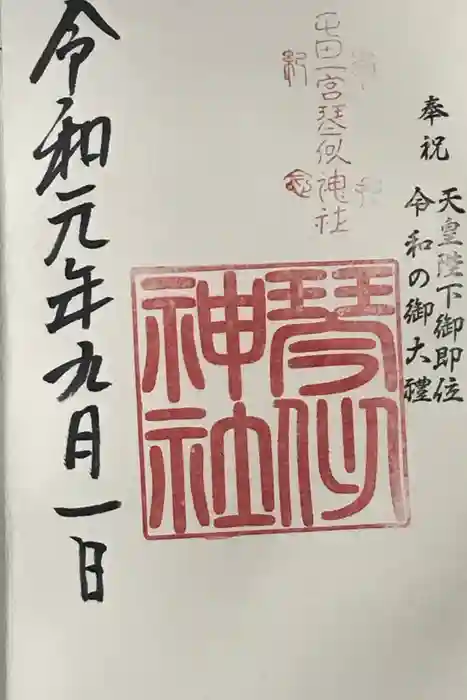 奉祝
天皇陛下御即位
令和の御大禮
屯田一宮琴似神社
琴似
神社
令和元年九月一日